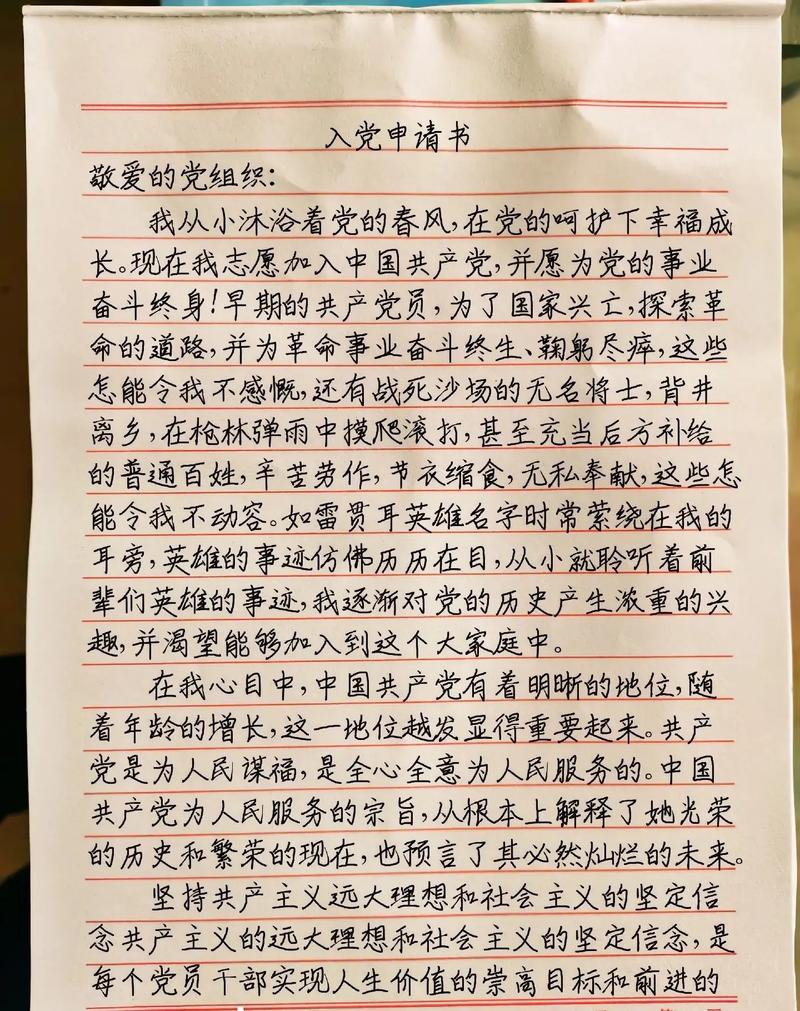 入党申请书
敬爱的党组织：
我从小沐浴着党的春风，在党的呵护下幸福成
长。现在我志愿加入中国共产党，并愿为党的事业
奋斗终身！早期的共产党员，为了国家兴亡，探索革
命的道路，并为革命事业奋斗终生、鞠躬尽瘁，这些
怎能令我不感慨，还有战死沙场的无名将士，背井
离乡，在枪林弹雨中摸爬滚打，甚至充当后方补给
的普通百姓，辛苦劳作，节衣缩食，无私奉献，这些怎
能令我不动容。如雷贯耳英雄名字时常萦绕在我的
耳旁，英雄的事迹仿佛历历在目，从小就聆听着前
辈们英雄的事迹，我逐渐对党的历史产生浓重的兴
趣，并渴望能够加入到这个大家庭中。
在我心目中，中国共产党有着明晰的地位，随
着年龄的增长，这一地位越发显得重要起来。共产
党是为人民谋福，是全心全意为人民服务的。中国
共产党为人民服务的宗旨，从根本上解释了她光荣
的历史和繁荣的现在，也预言了其必然灿烂的未来。
坚持共产主义远大理想和社会主义的坚定信
念共产主义的远大理想和社会主义的坚定信念，是
每个党员干部实现人生价值的崇高目标和前进的